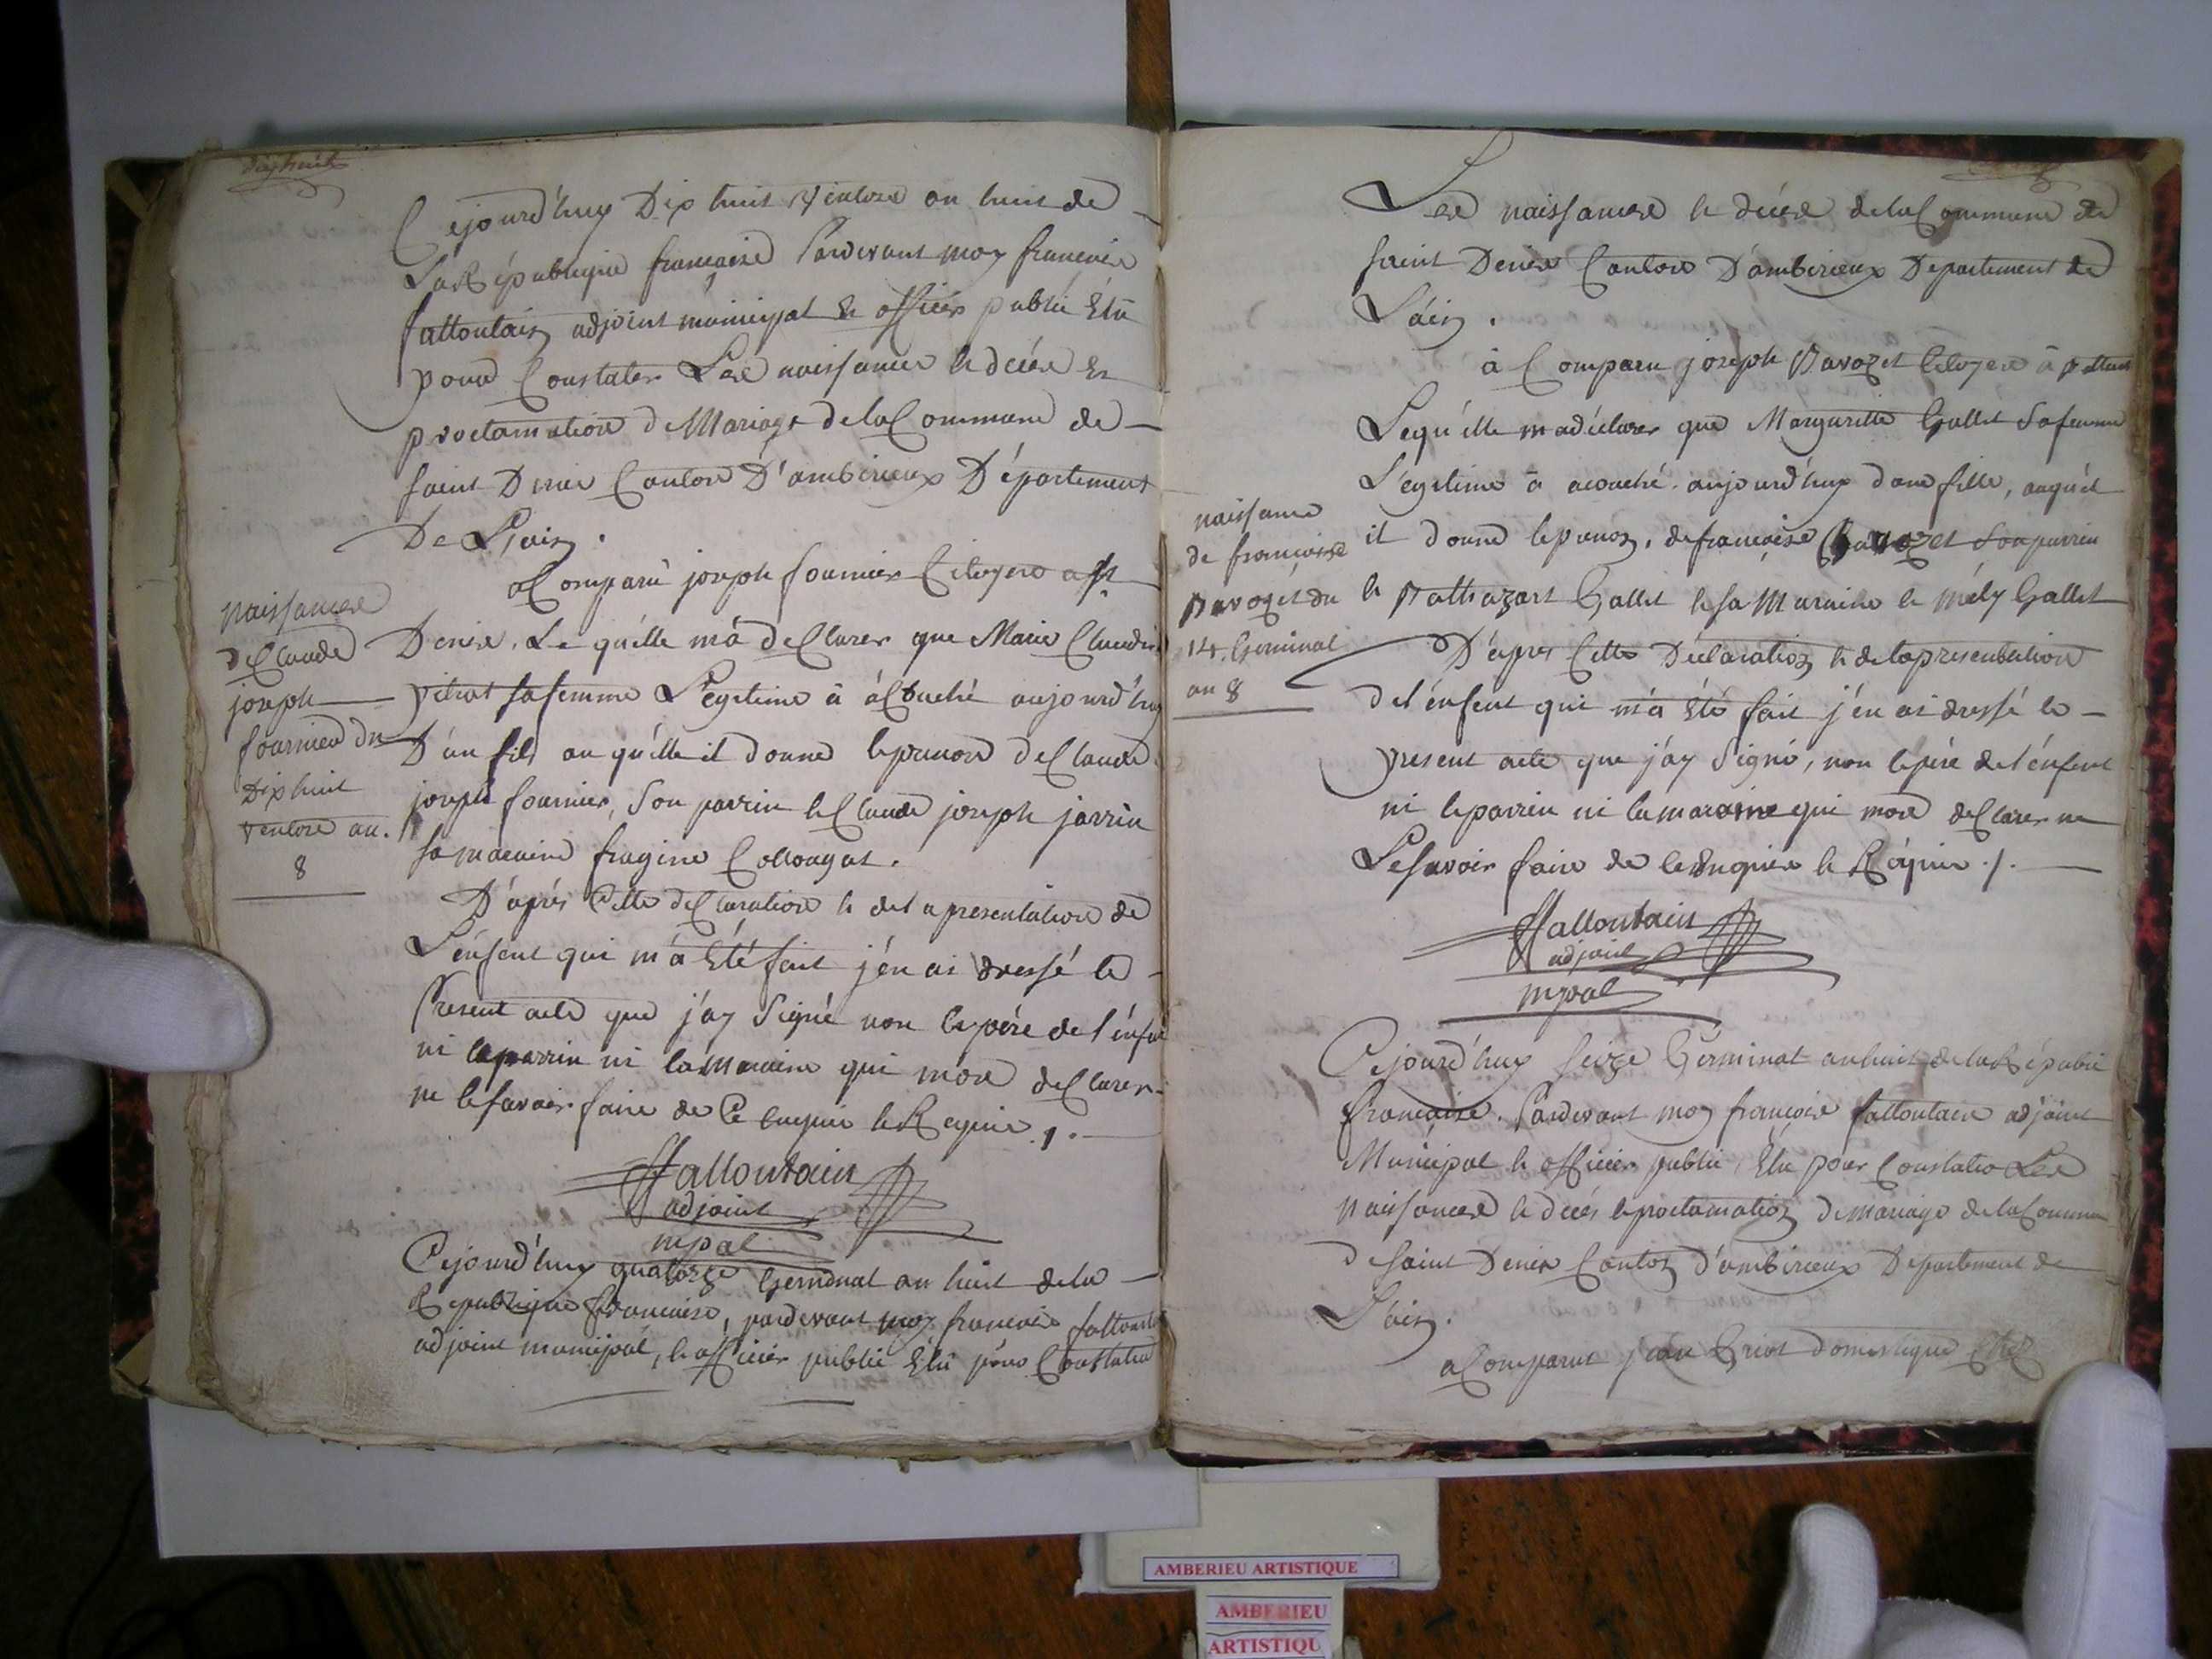 dixhuit
Cejourd'huy Dix huit Ventose an huit de
La République francaise Pardevant moy francois
fattoutain adjoint municipal Et officier public Elu
pour Constater Les naissance le décés Et
proclamation de Mariage de la Commune de
saint Denis Canton D'amberieux Département
De L'ain.
a Comparu joseph fournier Citoyen a St
Denis. Le quélle m'a deClarer que Marie Claudine
sa femme Légitime à a Couché aujourd'huy
D'un fils au quélle il donne le prenom de Claude
joseph fournier, Son parrin le Claude joseph jarrin
sa maraine Collougat.
D'aprés Cette deClaration le de la presentation de
L'énfent qui m'a Eté fait j'én ai dressé le
Present acte que j'ay Signé non le pére de l'énfent
ni le parrin ni la maraine qui mon deClarer
ne le savoir faire de Ce enquis le Requis ./.
ffattoutain
adjoint
mpal
naissance
de Claude
joseph
fournier du
Dix huit
ventose an.
8
Cejourd'huy quatorze Germinal an huit de la
Republique francaise, pardevant moy francois fattoutain
adjoint municipal, le officier public Elu pour Constater
Les naissances le décés de la Commune de
saint Denis Canton D'amberieux Departement de
L'ain.
à Comparu joseph Ravozet Citoyen à
Lequélle ma déclarer que Margueritte Gallet Sa femme
Légitime à acouché aujourd'huy d'une fille, auquél
il donne le prenom, de francoise Ravozet Son parrin
le Balthazart Gallet le sa Maraine le mély Gallet
D'apres Cette Déclaration le de la presentation
de l'énfent qui m'a Eté fait j'én ai dressé le
present acte que j'ay Signé, non le pére de l'énfent
ni le parrin ni la maraine qui mon deClarer ne
Le savoir faire de le enquis le Requis ./.
naissance
de francoise
Ravozet du
14. Germinal
an 8
ffattoutain
adjoint
mpal
Cejourd'huy seize Germinal an huit de la Républic
francaise. Pardevant moy francois fattoutain adjoint
Municipal le officier public, Elu pour Constater Les
naissances le décés le proclamation de mariage de la Commune
de saint Denis Canton d'amberieux Departement de
L'ain.
a Comparut jean Griot domestique Chez
AMBERIEU ARTISTIQUE
AMBERIEU
ARTISTIQU